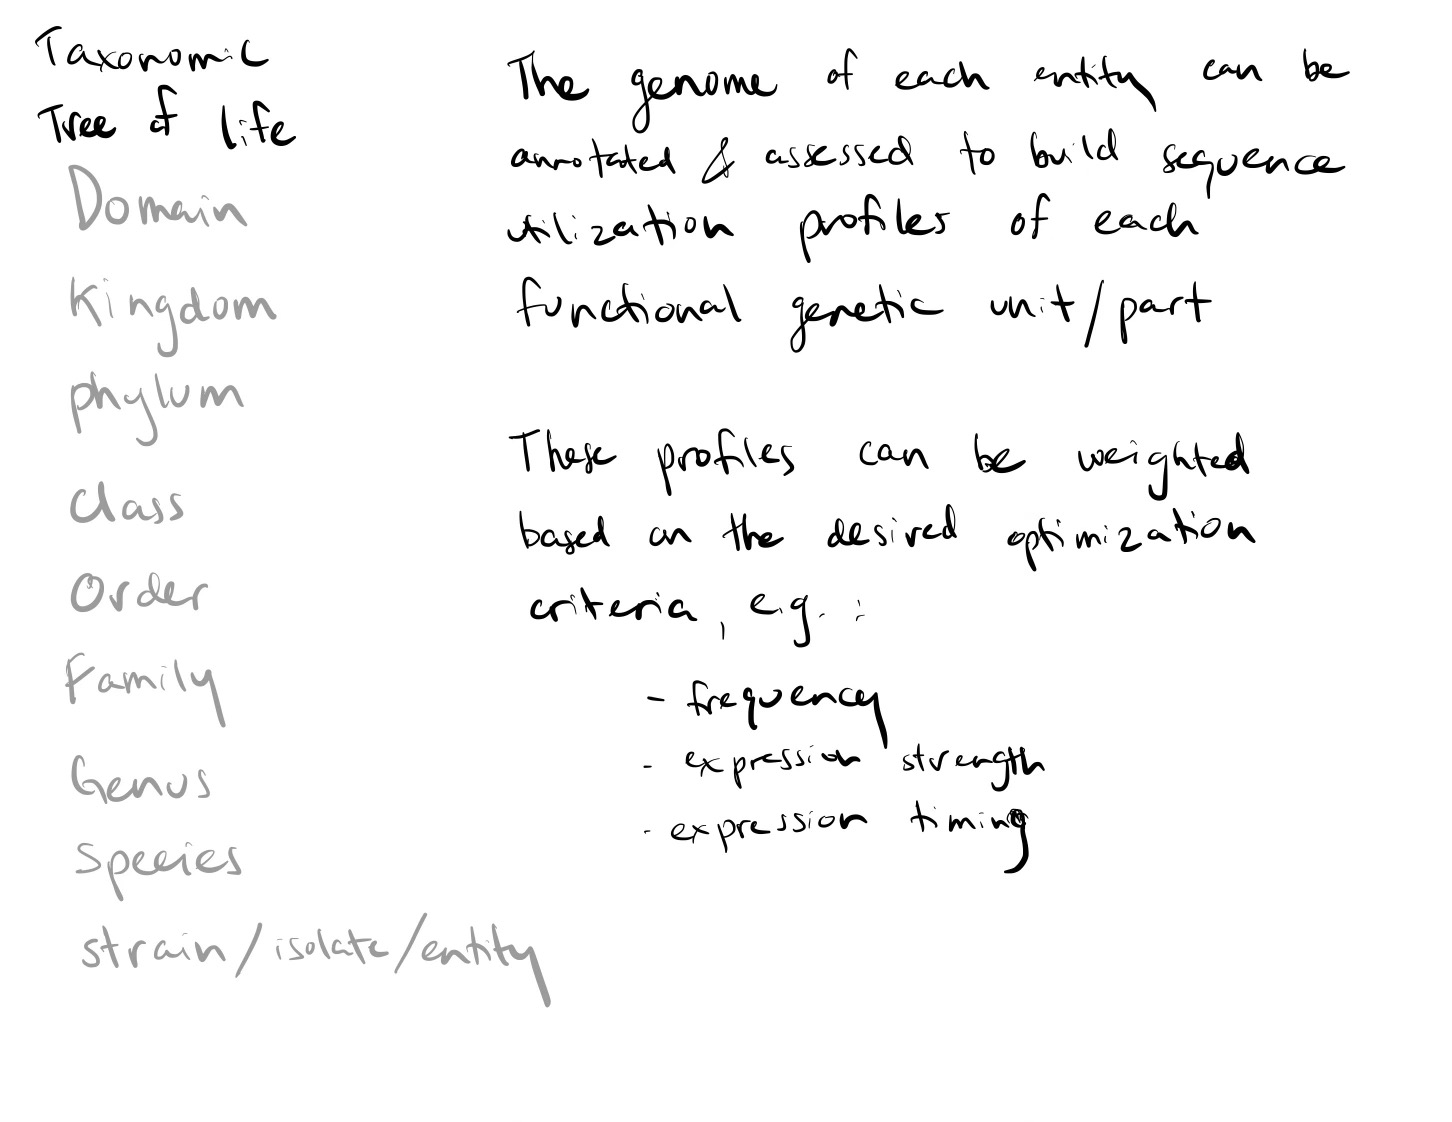 Taxonomic
Tree of life
Domain
Kingdom
phylum
Class
Order
Family
Genus
Species
strain/isolate/entity
The genome of each entity can be
annotated & assessed to build sequence
utilization profiles of each
functional genetic unit/part
These profiles can be weighted
based on the desired optimization
criteria, e.g. :
- frequency
- expression strength
- expression timing